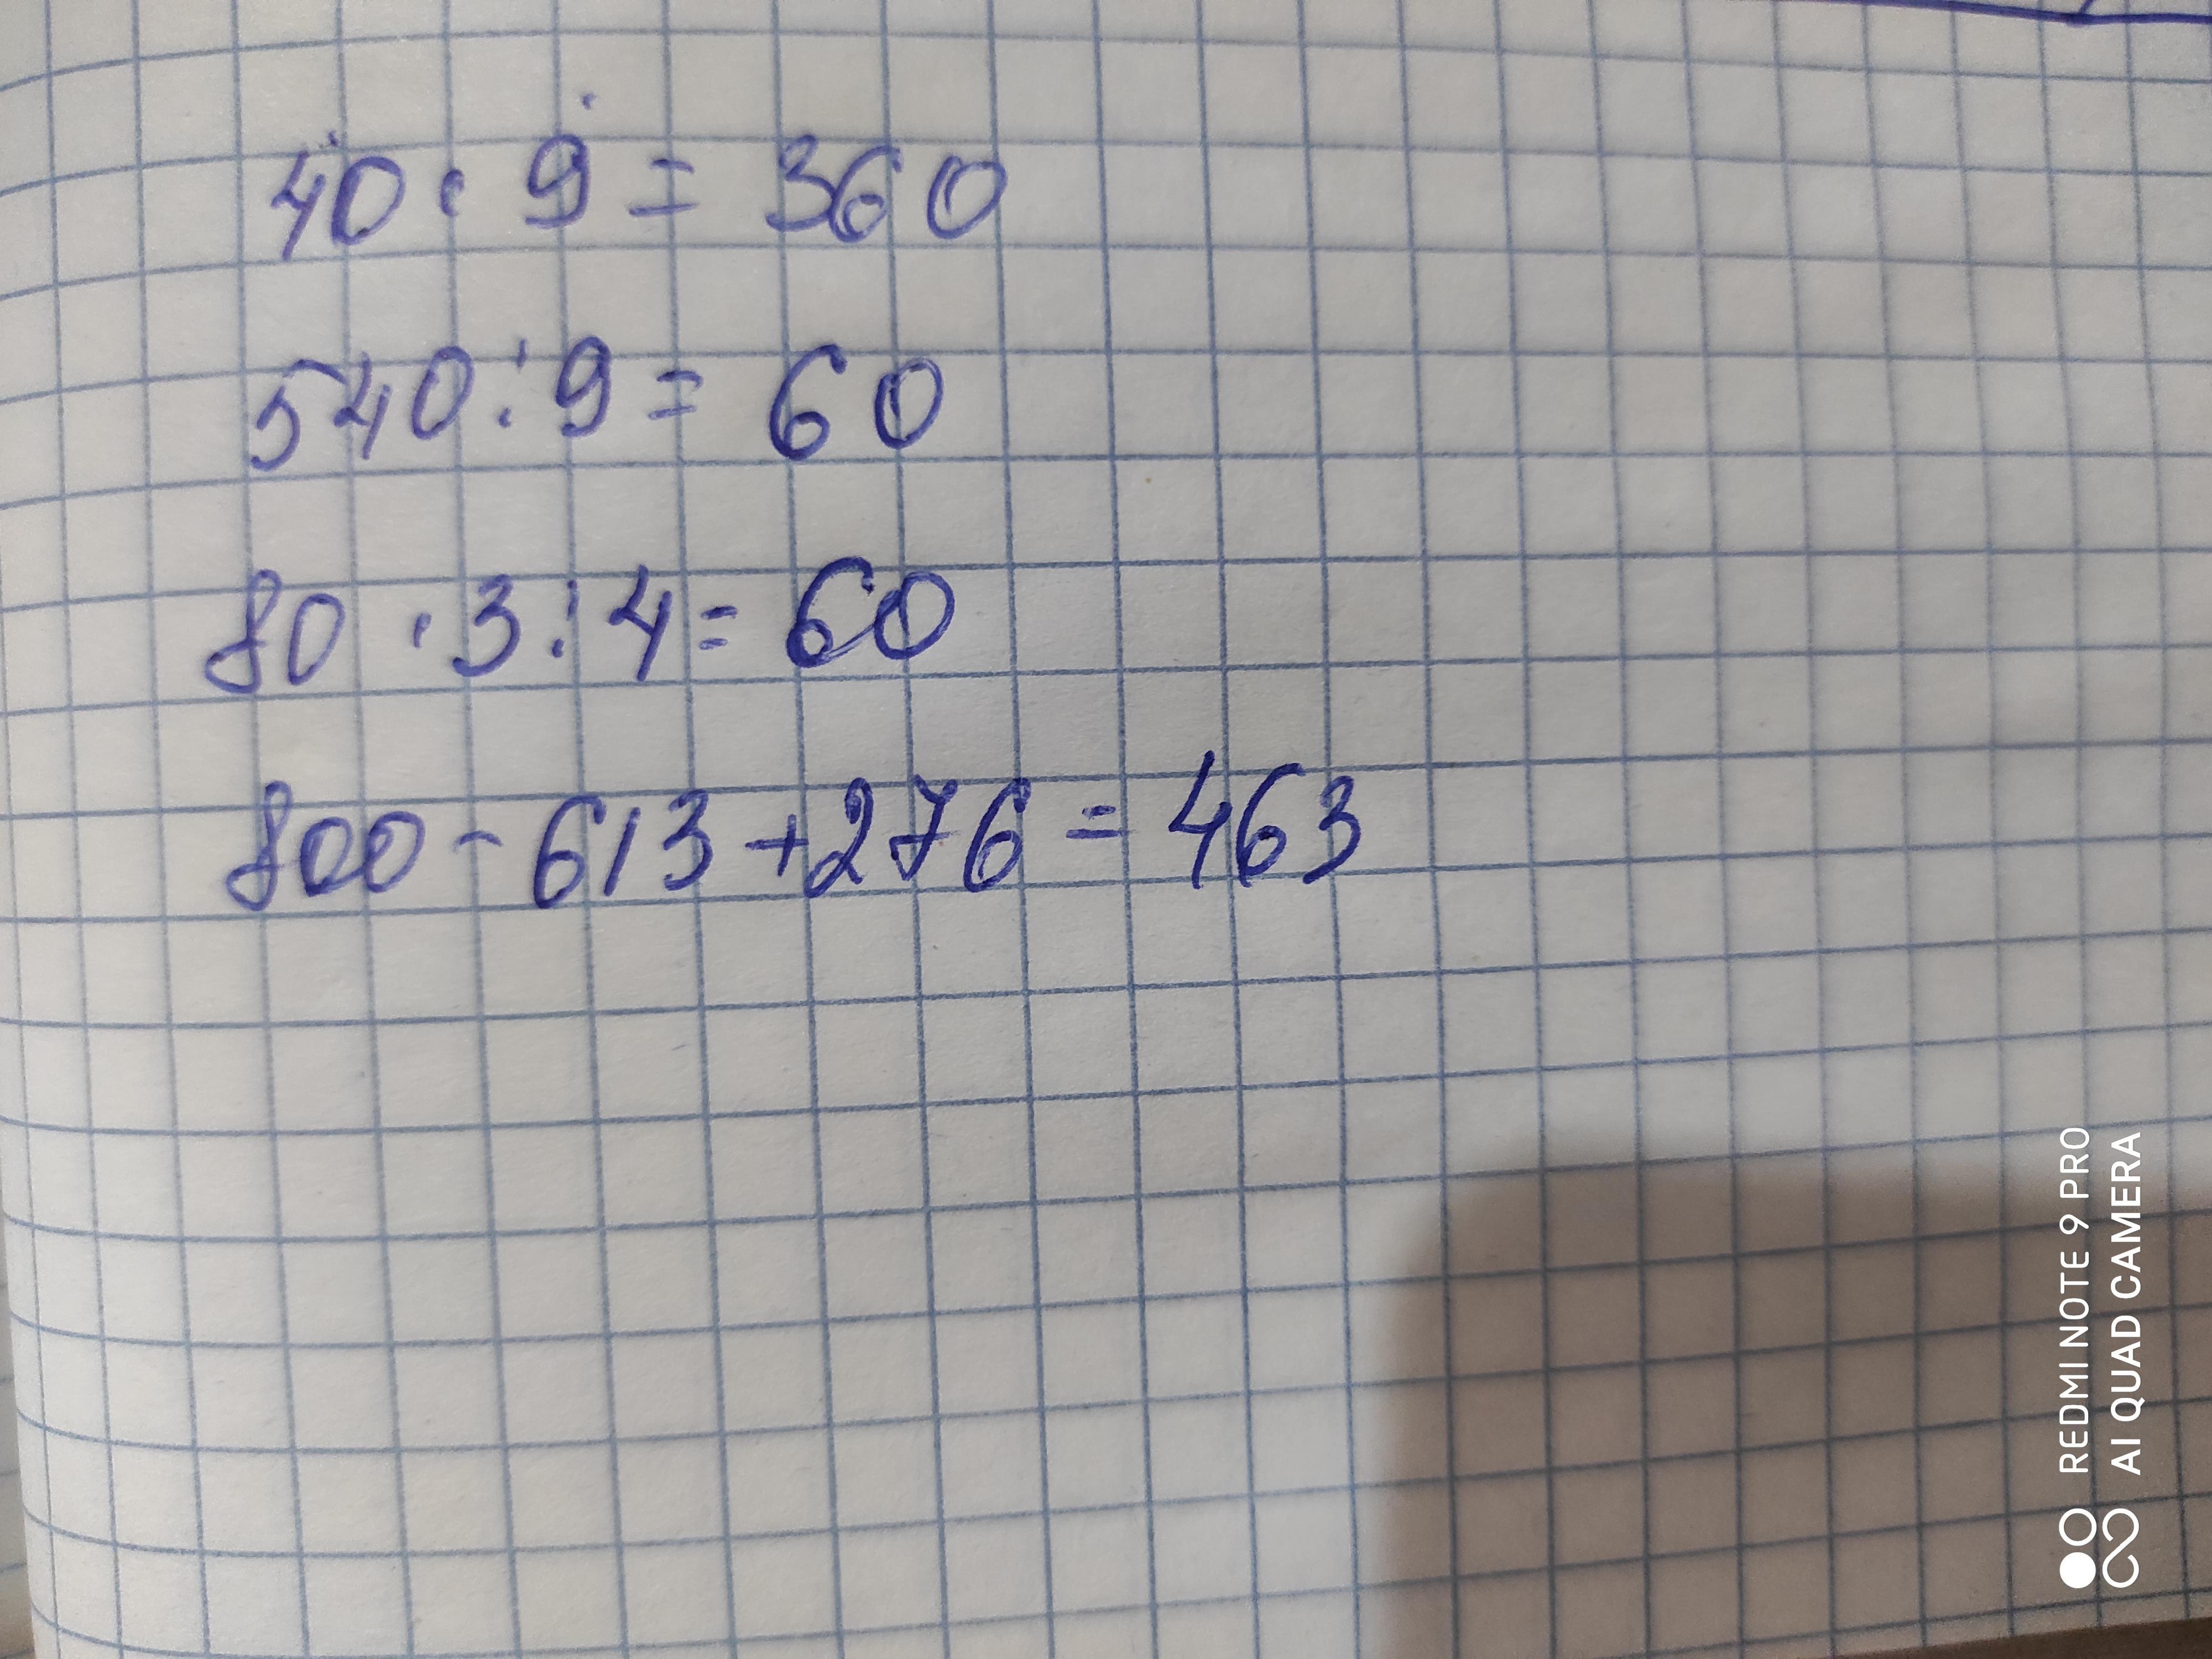 40 · 9 = 360
540 : 9 = 60
80 · 3 : 4 = 60
800 - 613 + 276 = 463
REDMI NOTE 9 PRO
AI QUAD CAMERA